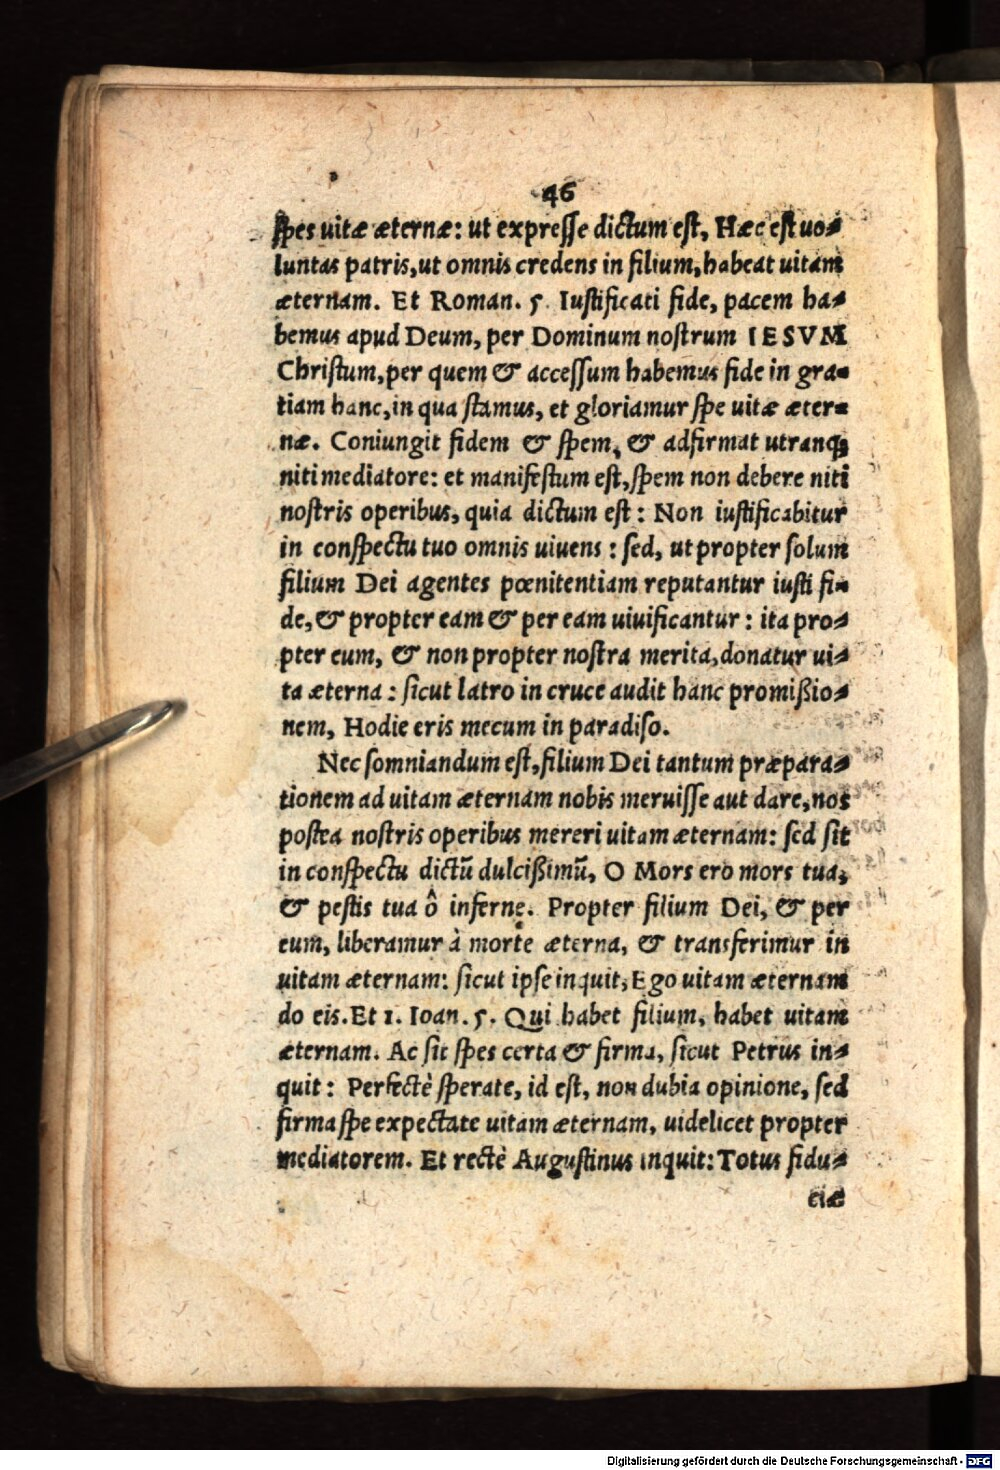 46
spes uitæ æternæ: ut expresse dictum est, Hæc est uo-
luntas patris, ut omnis credens in filium, habeat uitam
æternam. Et Roman. 5. Iustificati fide, pacem ha-
bemus apud Deum, per Dominum nostrum IESVM
Christum, per quem & accessum habemus fide in gra-
tiam hanc, in qua stamus, et gloriamur spe uitæ æter-
næ. Coniungit fidem & spem, & adfirmat utranq;
niti mediatore: et manifestum est, spem non debere niti
nostris operibus, quia dictum est: Non iustificabitur
in conspectu tuo omnis uiuens: sed, ut propter solum
filium Dei agentes pœnitentiam reputantur iusti fi-
de, & propter eam & per eam uiuificantur: ita pro-
pter eum, & non propter nostra merita, donatur ui-
ta æterna: sicut latro in cruce audit hanc promißio-
nem, Hodie eris mecum in paradiso.
Nec somniandum est, filium Dei tantum præpara-
tionem ad uitam æternam nobis meruisse aut dare, nos
postea nostris operibus mereri uitam æternam: sed sit
in conspectu dictū dulcißimū, O Mors ero mors tua,
& pestis tua ô inferne. Propter filium Dei, & per
eum, liberamur à morte æterna, & transferimur in
uitam æternam: sicut ipse inquit, Ego uitam æternam
do eis. Et 1. Ioan. 5. Qui habet filium, habet uitam
æternam. Ac sit spes certa & firma, sicut Petrus in-
quit: Perfectè sperate, id est, non dubia opinione, sed
firma spe expectate uitam æternam, uidelicet propter
mediatorem. Et rectè Augustinus inquit: Totus fidu-
ciæ
Digitalisierung gefördert durch die Deutsche Forschungsgemeinschaft - DFG